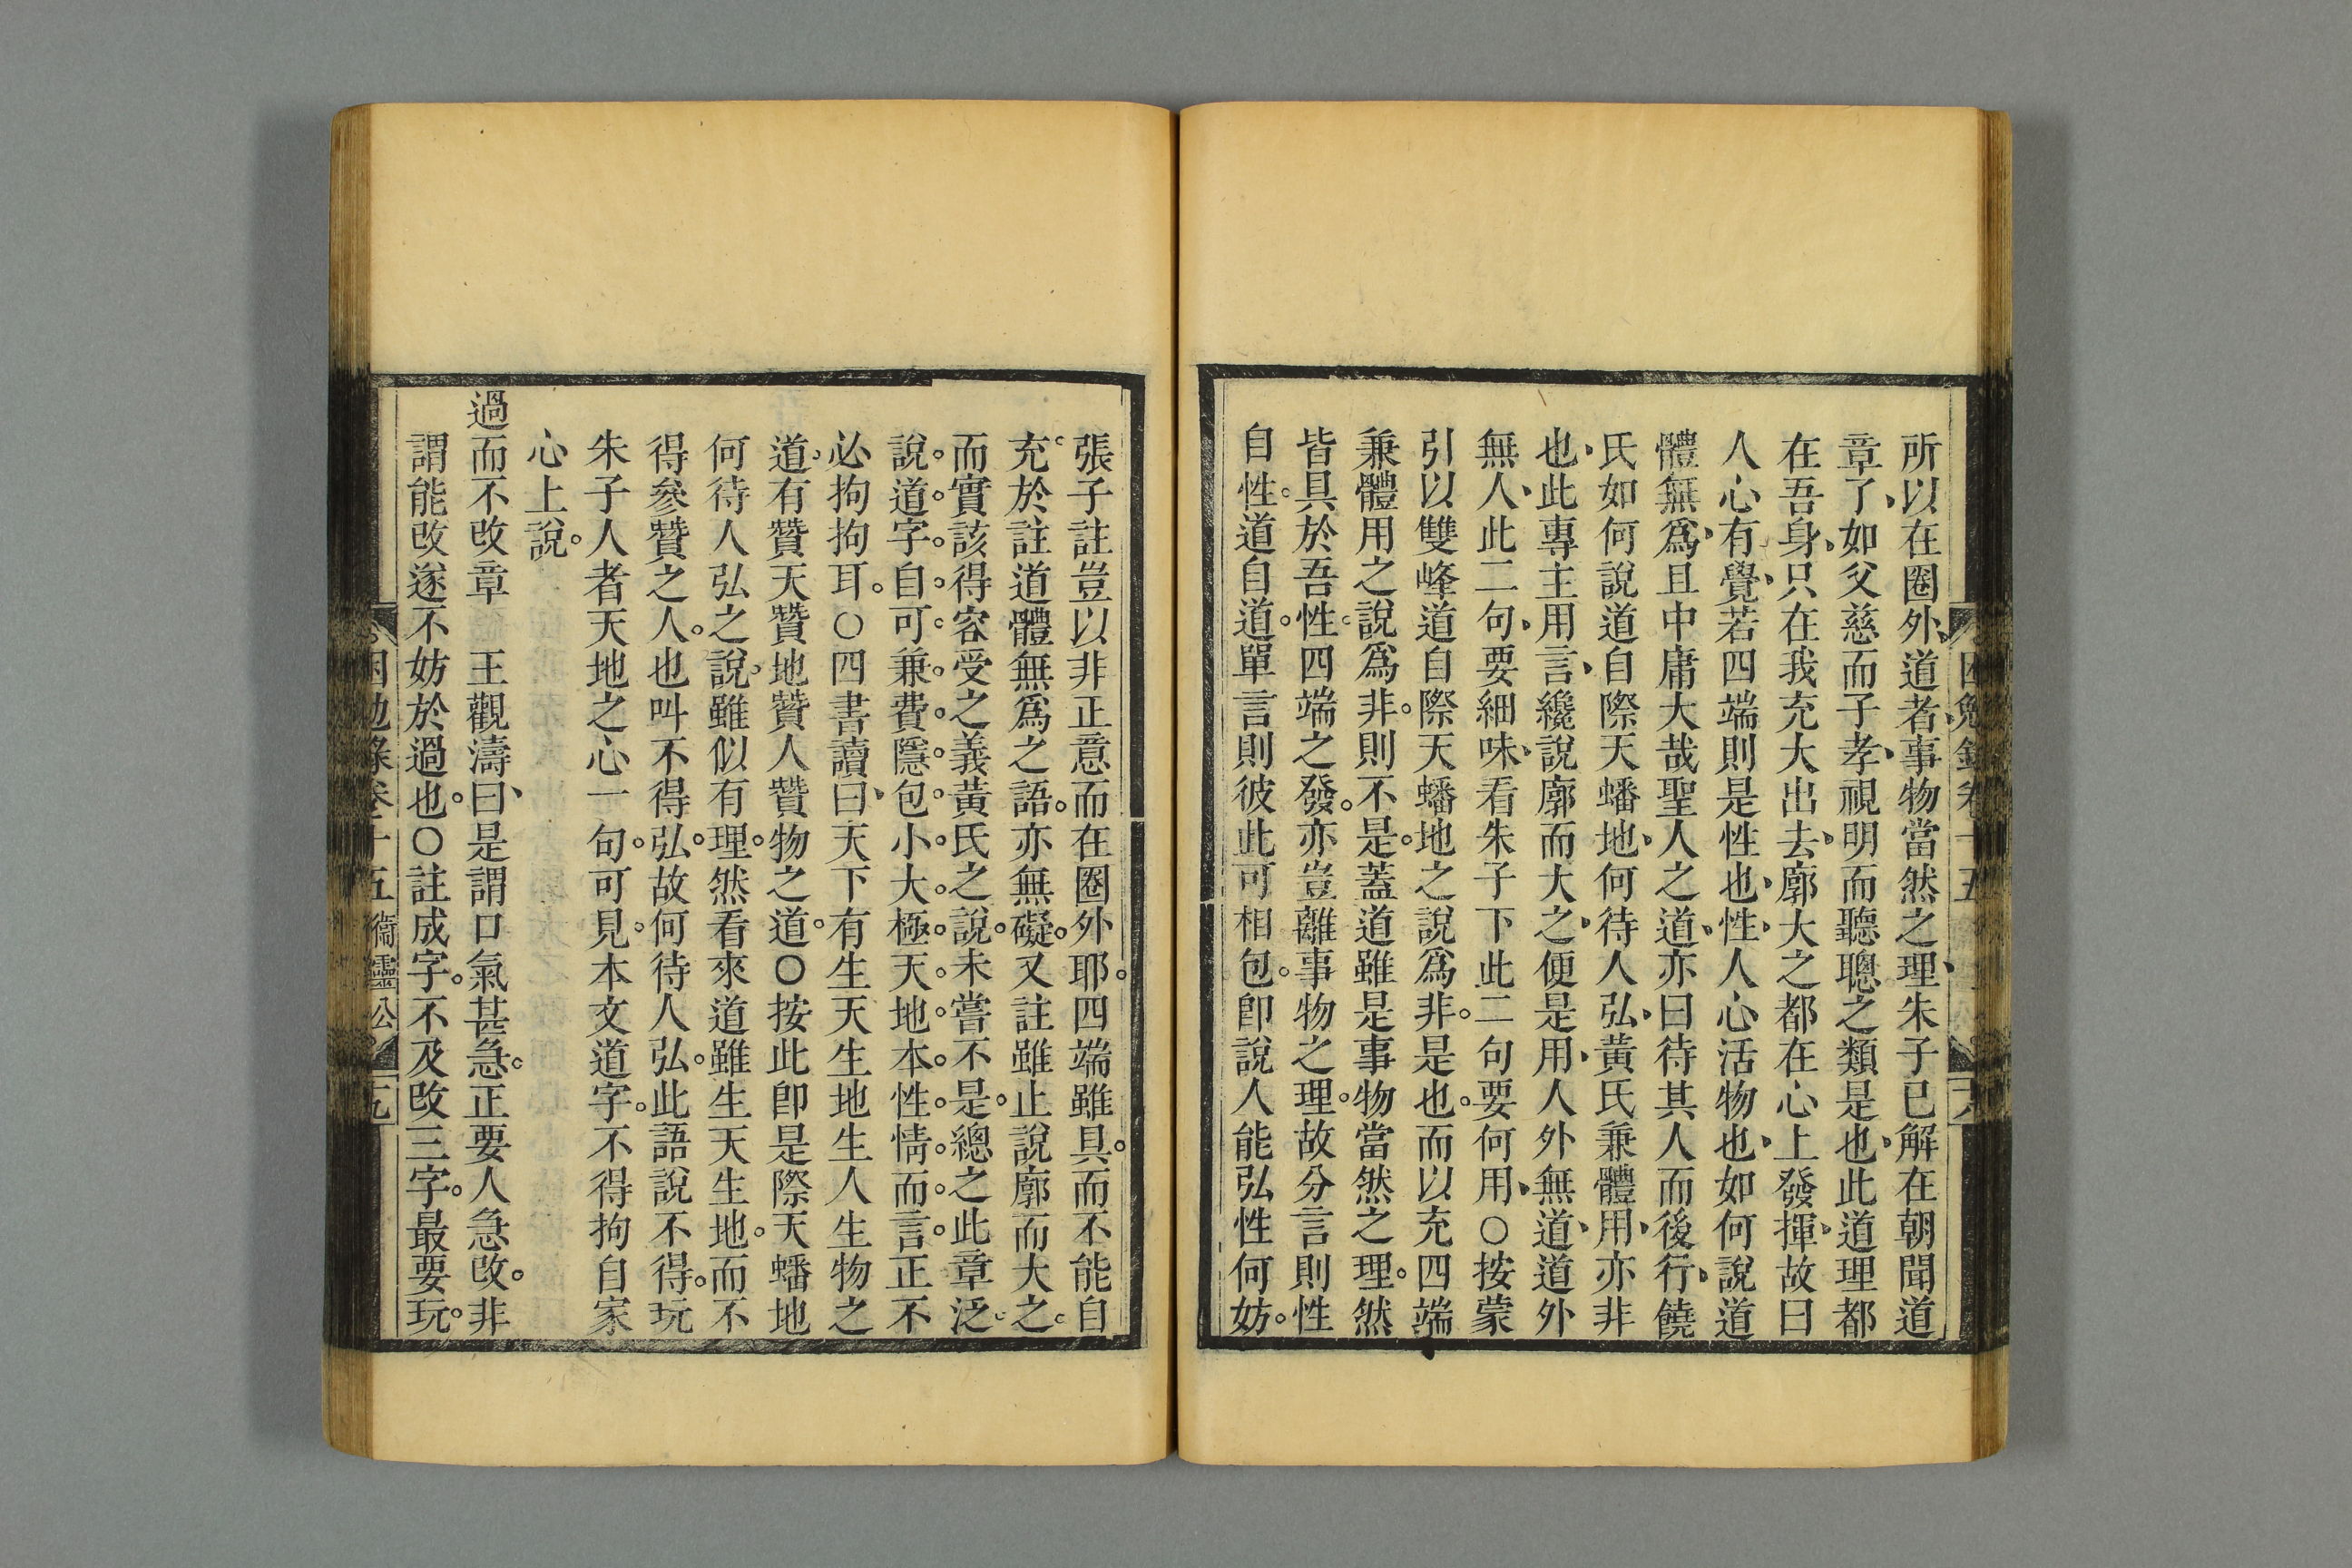 困勉錄卷十五
六
所以在圈外道者事物當然之理朱子已解在朝聞道
章了如父慈而子孝視明而聽聰之類是也此道理都
在吾身只在我充大出去廓大之都在心上發揮故曰
人心有覺若四端則是性也性人心活物也如何說道
體無爲且中庸大哉聖人之道亦曰待其人而後行饒
氏如何說道自際天蟠地何待人弘黃氏兼體用亦非
也此專主用言纔說廓而大之便是用人外無道道外
無人此二句要細味看朱子下此二句要何用○按蒙
引以雙峰道自際天蟠地之說爲非是也而以充四端
兼體用之說爲非則不是蓋道雖是事物當然之理然
皆具於吾性四端之發亦豈離事物之理故分言則性
自性道自道單言則彼此可相包卽說人能弘性何妨
張子註豈以非正意而在圈外耶四端雖具而不能自
充於註道體無爲之語亦無礙又註雖止說廓而大之
而實該得容受之義黃氏之說未嘗不是總之此章泛
說道字自可兼費隱包小大極天地本性情而言正不
必拘拘耳○四書讀曰天下有生天生地生人生物之
道有贊天贊地贊人贊物之道○按此卽是際天蟠地
何待人弘之說雖似有理然看來道雖生天生地而不
得參贊之人也叫不得弘故何待人弘此語說不得玩
朱子人者天地之心一句可見本文道字不得拘自家
心上說
過而不改章　王觀濤曰是謂口氣甚急正要人急改非
謂能改遂不妨於過也○註成字不及改三字最要玩
困勉錄卷十五 衞靈公 九